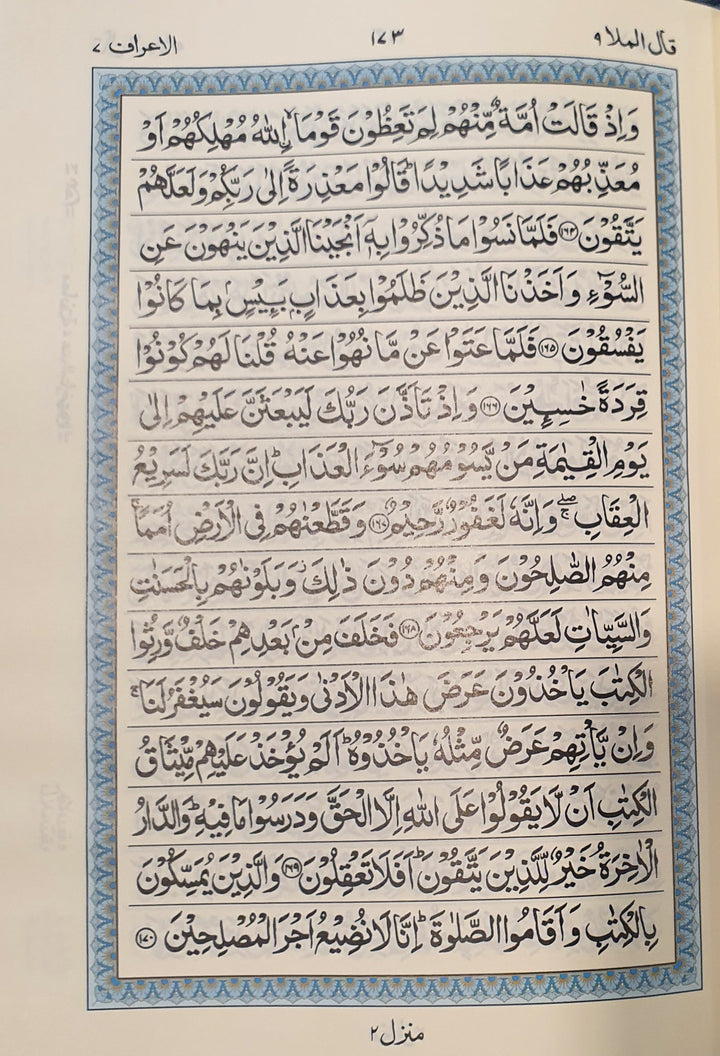 قال الملا ٩ ١٧٣ الاعراف ٧
وَاِذْ قَالَتْ اُمَّةٌ مِّنْهُمْ لِمَ تَعِظُوْنَ قَوْمَا ۙ اِۨللّٰهُ مُهْلِكُهُمْ اَوْ
مُعَذِّبُهُمْ عَذَابًا شَدِيْدًا ؕ قَالُوْا مَعْذِرَةً اِلٰى رَبِّكُمْ وَلَعَلَّهُمْ
يَتَّقُوْنَ ۝۱۶۴ فَلَمَّا نَسُوْا مَا ذُكِّرُوْا بِهٖۤ اَنْجَيْنَا الَّذِيْنَ يَنْهَوْنَ عَنِ
السُّوْٓءِ وَاَخَذْنَا الَّذِيْنَ ظَلَمُوْا بِعَذَابٍۭ بَـِٕيْسٍۭ بِمَا كَانُوْا
يَفْسُقُوْنَ ۝۱۶۵ فَلَمَّا عَتَوْا عَنْ مَّا نُهُوْا عَنْهُ قُلْنَا لَهُمْ كُوْنُوْا
قِرَدَةً خٰسِـِٕيْنَ ۝۱۶۶ وَاِذْ تَاَذَّنَ رَبُّكَ لَيَبْعَثَنَّ عَلَيْهِمْ اِلٰى
يَوْمِ الْقِيٰمَةِ مَنْ يَّسُوْمُهُمْ سُوْٓءَ الْعَذَابِ ؕ اِنَّ رَبَّكَ لَسَرِيْعُ
الْعِقَابِ ۖۚ وَاِنَّهٗ لَغَفُوْرٌ رَّحِيْمٌ ۝۱۶۷ وَقَطَّعْنٰهُمْ فِى الْاَرْضِ اُمَمًا ۚ
مِنْهُمُ الصّٰلِحُوْنَ وَمِنْهُمْ دُوْنَ ذٰلِكَ ؗ وَبَلَوْنٰهُمْ بِالْحَسَنٰتِ
وَالسَّيِّاٰتِ لَعَلَّهُمْ يَرْجِعُوْنَ ۝۱۶۸ فَخَلَفَ مِنْۢ بَعْدِهِمْ خَلْفٌ وَّرِثُوا
الْكِتٰبَ يَاْخُذُوْنَ عَرَضَ هٰذَا الْاَدْنٰى وَيَقُوْلُوْنَ سَيُغْفَرُ لَنَا ۚ
وَاِنْ يَّاْتِهِمْ عَرَضٌ مِّثْلُهٗ يَاْخُذُوْهُ ؕ اَلَمْ يُؤْخَذْ عَلَيْهِمْ مِّيْثَاقُ
الْكِتٰبِ اَنْ لَّا يَقُوْلُوْا عَلَى اللّٰهِ اِلَّا الْحَقَّ وَدَرَسُوْا مَا فِيْهِ ؕ وَالدَّارُ
الْاٰخِرَةُ خَيْرٌ لِّلَّذِيْنَ يَتَّقُوْنَ ؕ اَفَلَا تَعْقِلُوْنَ ۝۱۶۹ وَالَّذِيْنَ يُمَسِّكُوْنَ
بِالْكِتٰبِ وَاَقَامُوا الصَّلٰوةَ ؕ اِنَّا لَا نُضِيْعُ اَجْرَ الْمُصْلِحِيْنَ ۝۱۷۰
منزل ٢